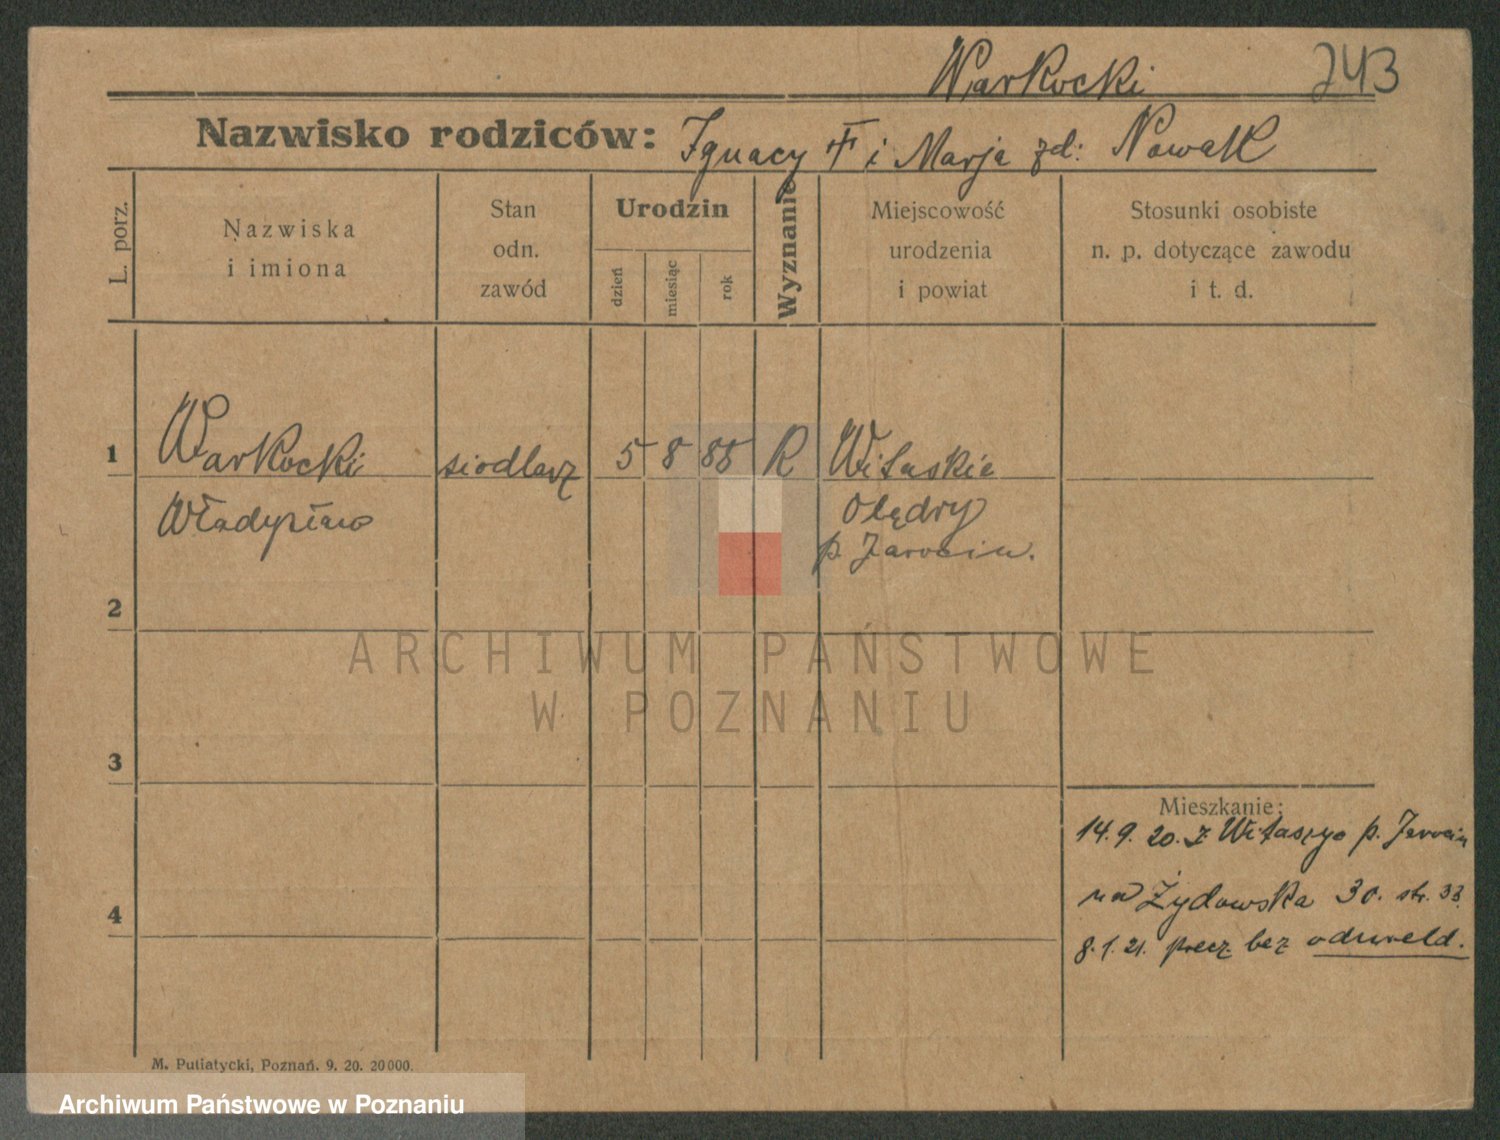 Warkocki 243
Nazwisko rodziców: Ignacy i Marja zd: Nowak
L. porz.
Nazwiska
i imiona
Stan
odn.
zawód
Urodzin
dzień
miesiąc
rok
Wyznanie
Miejscowość
urodzenia
i powiat
Stosunki osobiste
n. p. dotyczące zawodu
i t. d.
1 Warkocki siodlarz 5 8 88 R Witaskie
Władysław Olędry
p. Jarocin.
2
3
4
Mieszkanie:
14.9.20. z Witaszyc p. Jarocin
na Żydowska 30. str. 33.
8.1.21. precz bez odmeld.
M. Putiatycki, Poznań. 9. 20. 20000.
ARCHIWUM PAŃSTWOWE
W POZNANIU
Archiwum Państwowe w Poznaniu